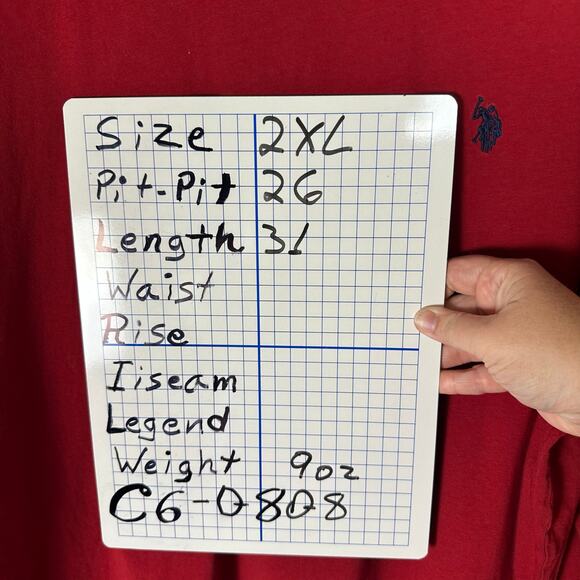 Size 2XL
Pit-Pit 26
Length 31
Waist
Rise
Iiseam
Legend
Weight 9oz
C6-0808